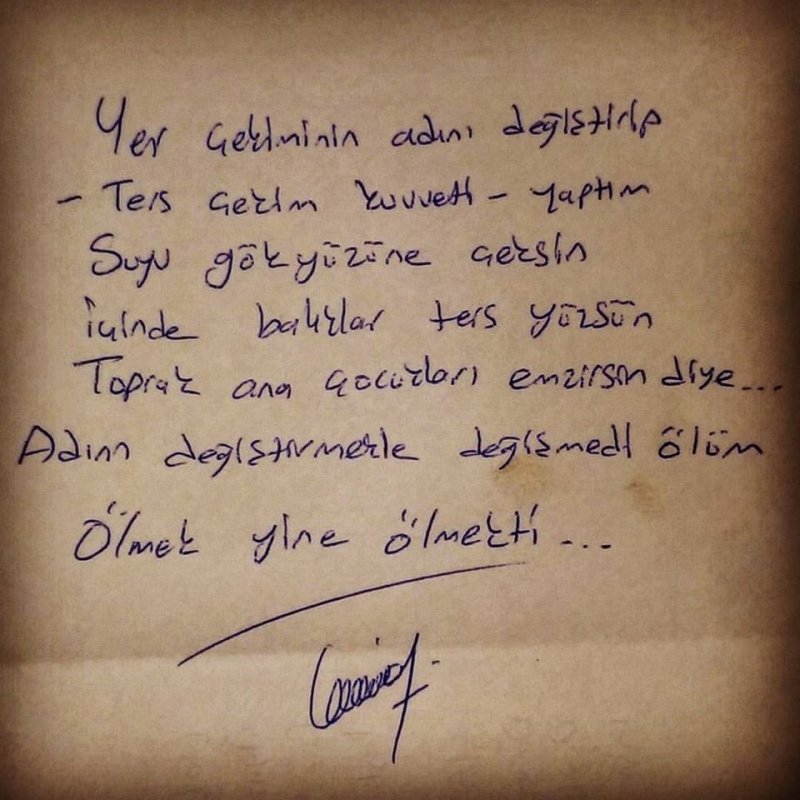 Yer çekiminin adını değiştirip
- Ters çekim kuvveti - yaptım
Suyu gökyüzüne çeksin
içinde balıklar ters yüzsün
Toprak ana çocukları emzirsin diye...
Adını değiştirmekle değişmedi ölüm
Ölmek yine ölmekti...